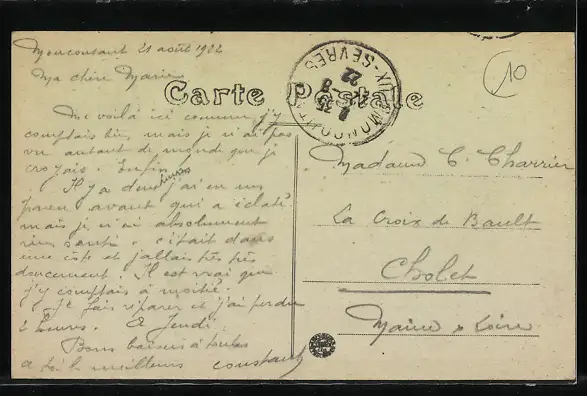 Moncoutant 21 août 1922
Ma chère Marie
Carte Postale
MONCOUTANT
DEUX-SEVRES
8
22
10
Me voilà ici comme j'y
comptais bien, mais je n'ai pas
vu autant de monde que je
croyais. Enfin
Il y a deux heures j'ai eu un
pneu avant qui a éclaté
mais je n'ai absolument
rien senti. C'était dans
une côte et j'allais très très
doucement. Il est vrai que
j'y comptais à moitié.
Je fais réparer et j'ai perdu
2 heures. A Jeudi.
Bons baisers à toutes
a toi le meilleur Constant
Madame C. Charrier
La Croix de Bault
Cholet
Maine & Loire